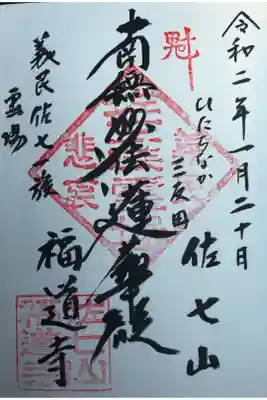 令和二年一月二十日
ひたちなか
三反田
佐七山
南無妙法蓮華経
義民佐七一族
霊場
福道寺